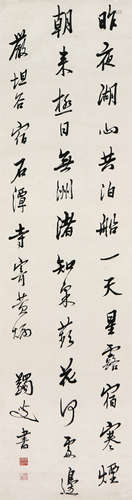 昨夜湖心共泊船一天星露宿寒煙
朝來極目無洲渚知采蘋花何處邊
嚴坦叔宿石潭寺寄黃炳
蠲叟書